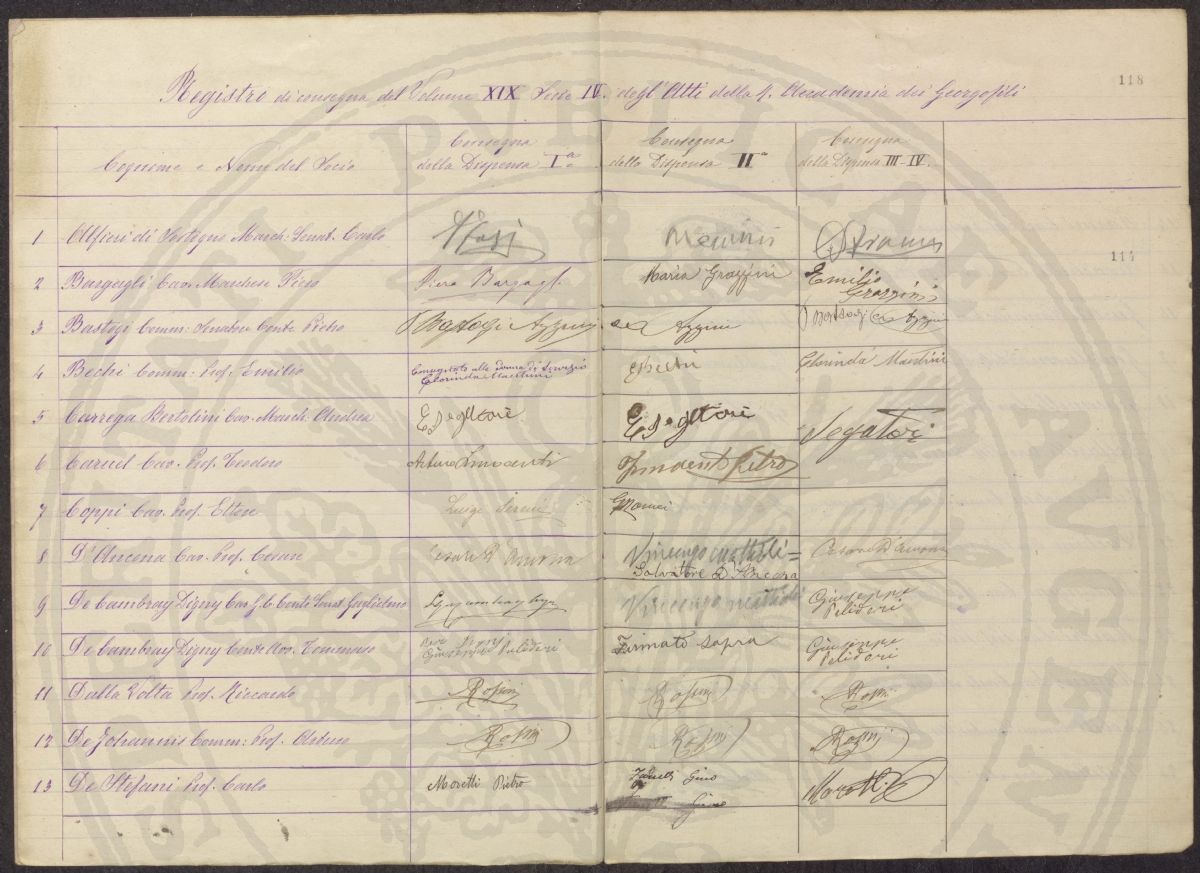 118
Registro di consegna del Volume XIX Serie IV. degli Atti della R. Accademia dei Georgofili
Cognome e Nome del Socio
Consegna della Dispensa Iª
Consegna della Dispensa IIª
Consegna della Dispensa III-IV.
114
1 Alfieri di Sostegno March: Senat. Carlo
2 Bargagli Cav. Marchese Piero Piero Bargagli Maria Grazzini Emilio Grazzini
3 Bastogi Comm: Senatore Conte Pietro Bastogi
4 Bechi Comm: Prof. Emilio Consegnato alla donna di servizio Clorinda Mantini EBechi Clorinda Mantini
5 Carrega Bertolini Cav. March. Andrea Segatori
6 Caruel Cav. Prof. Teodoro Arturo Innocenti Innocenti Pietro
7 Coppi Cav. Prof. Ettore Luigi
8 D'Ancona Cav. Prof. Cesare Cesare D'Ancona Vincenzo Salvatore D'Ancona Cesare D'Ancona
9 De Cambray Digny Cav. G. C. Conte Senat. Guglielmo Vincenzo Giuseppe Pelidori
10 De Cambray Digny Conte Avv. Tommaso Giuseppe Pelidori Firmato sopra Giuseppe Pelidori
11 Dalla Volta Prof. Riccardo Rosini Rosini Rosini
12 De Johannis Comm: Prof. Arturo Rosini Rosini Rosini
13 De Stefani Prof. Carlo Moretti Pietro Gino Moretti
Gino